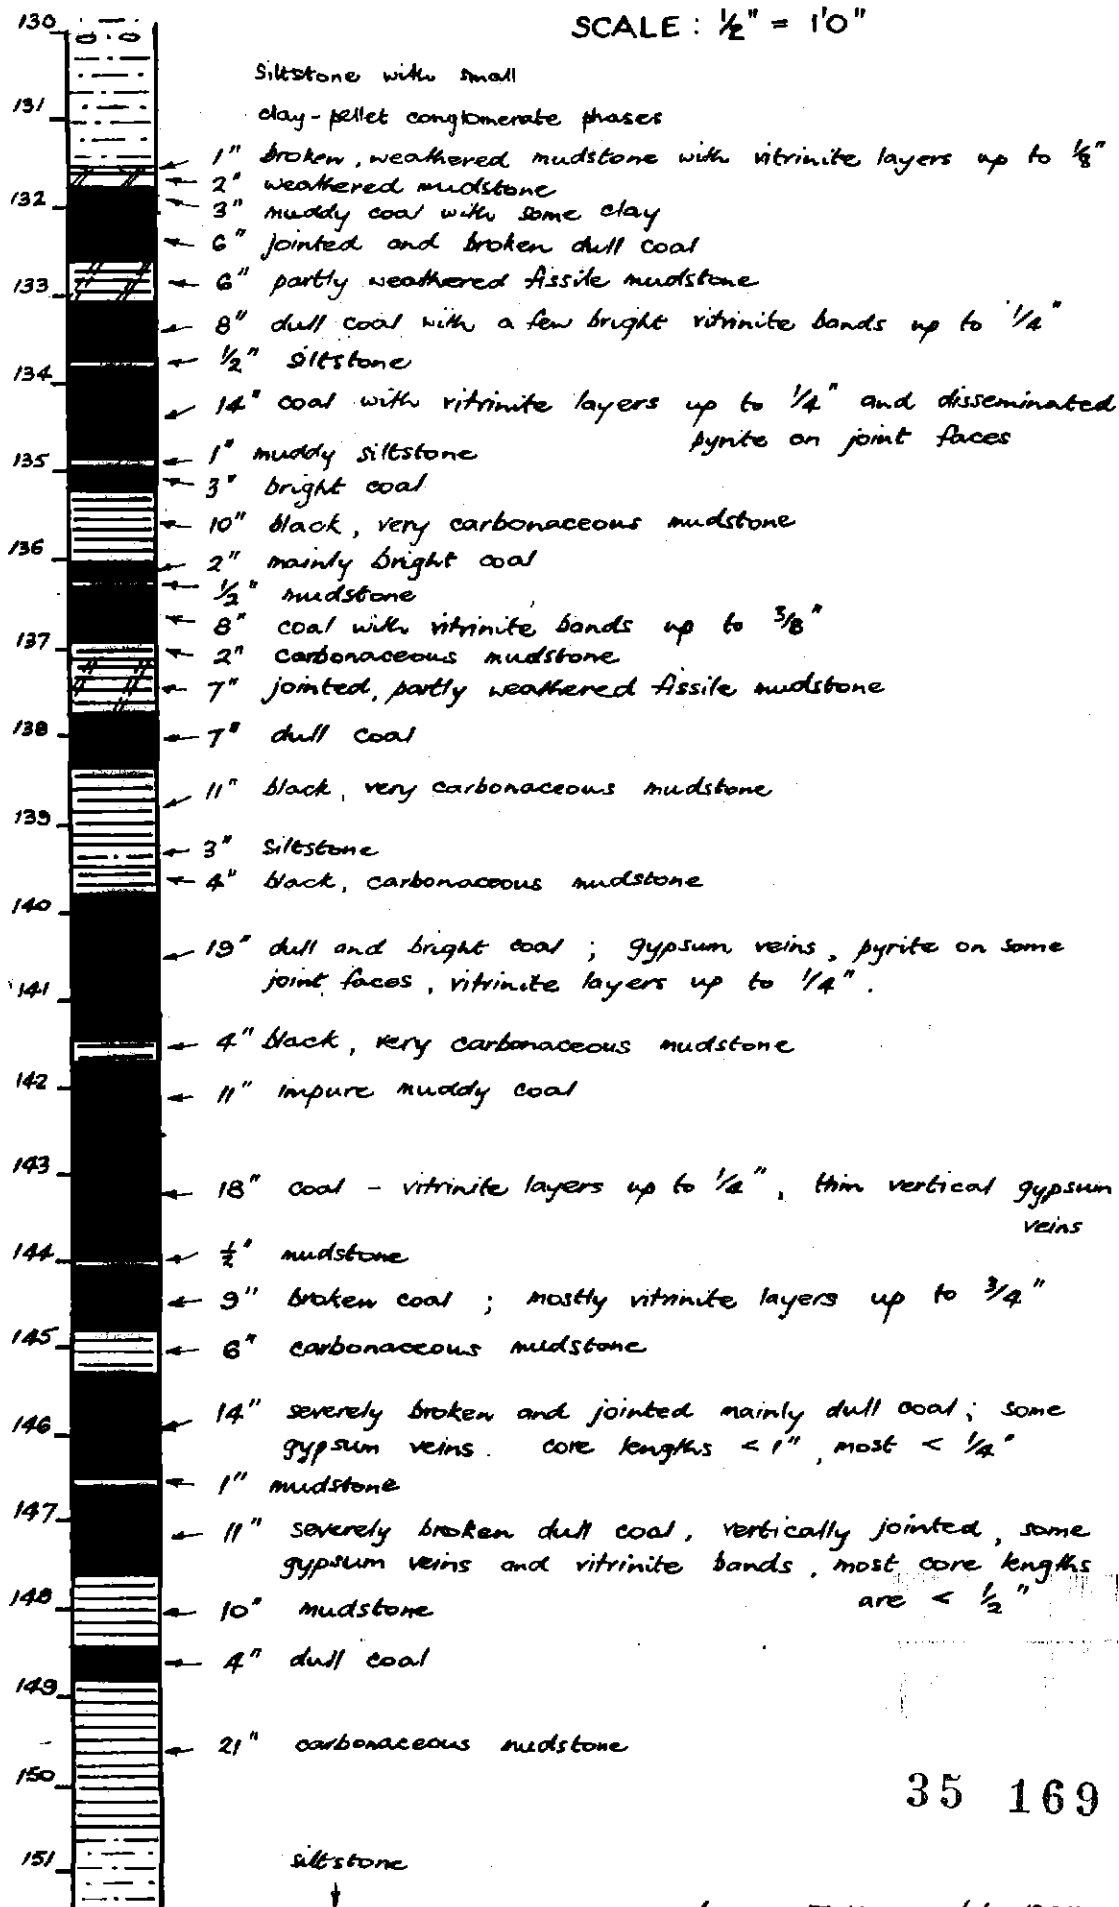 SCALE : ½" = 1'0"
130
Siltstone with small
131
clay-pellet conglomerate phases
1" broken, weathered mudstone with vitrinite layers up to ⅛"
2" weathered mudstone
132
3" muddy coal with some clay
6" jointed and broken dull coal
133
6" partly weathered fissile mudstone
8" dull coal with a few bright vitrinite bands up to 1/4"
½" siltstone
134
14" coal with vitrinite layers up to 1/4" and disseminated
pyrite on joint faces
135
1" muddy siltstone
3" bright coal
10" black, very carbonaceous mudstone
136
2" mainly bright coal
½" mudstone
8" coal with vitrinite bands up to 3/8"
137
2" carbonaceous mudstone
7" jointed, partly weathered fissile mudstone
138
7" dull coal
11" black, very carbonaceous mudstone
139
3" siltstone
4" black, carbonaceous mudstone
140
19" dull and bright coal ; gypsum veins, pyrite on some
141
joint faces, vitrinite layers up to 1/4".
4" black, very carbonaceous mudstone
142
11" impure muddy coal
143
18" coal - vitrinite layers up to 1/4", thin vertical gypsum
veins
144
½" mudstone
9" broken coal ; mostly vitrinite layers up to 3/4"
145
6" carbonaceous mudstone
14" severely broken and jointed mainly dull coal; some
146
gypsum veins. core lengths < 1", most < 1/4"
1" mudstone
147
11" severely broken dull coal, vertically jointed, some
gypsum veins and vitrinite bands, most core lengths
are < ½"
148
10" mudstone
4" dull coal
149
21" carbonaceous mudstone
150
35 169
151
siltstone